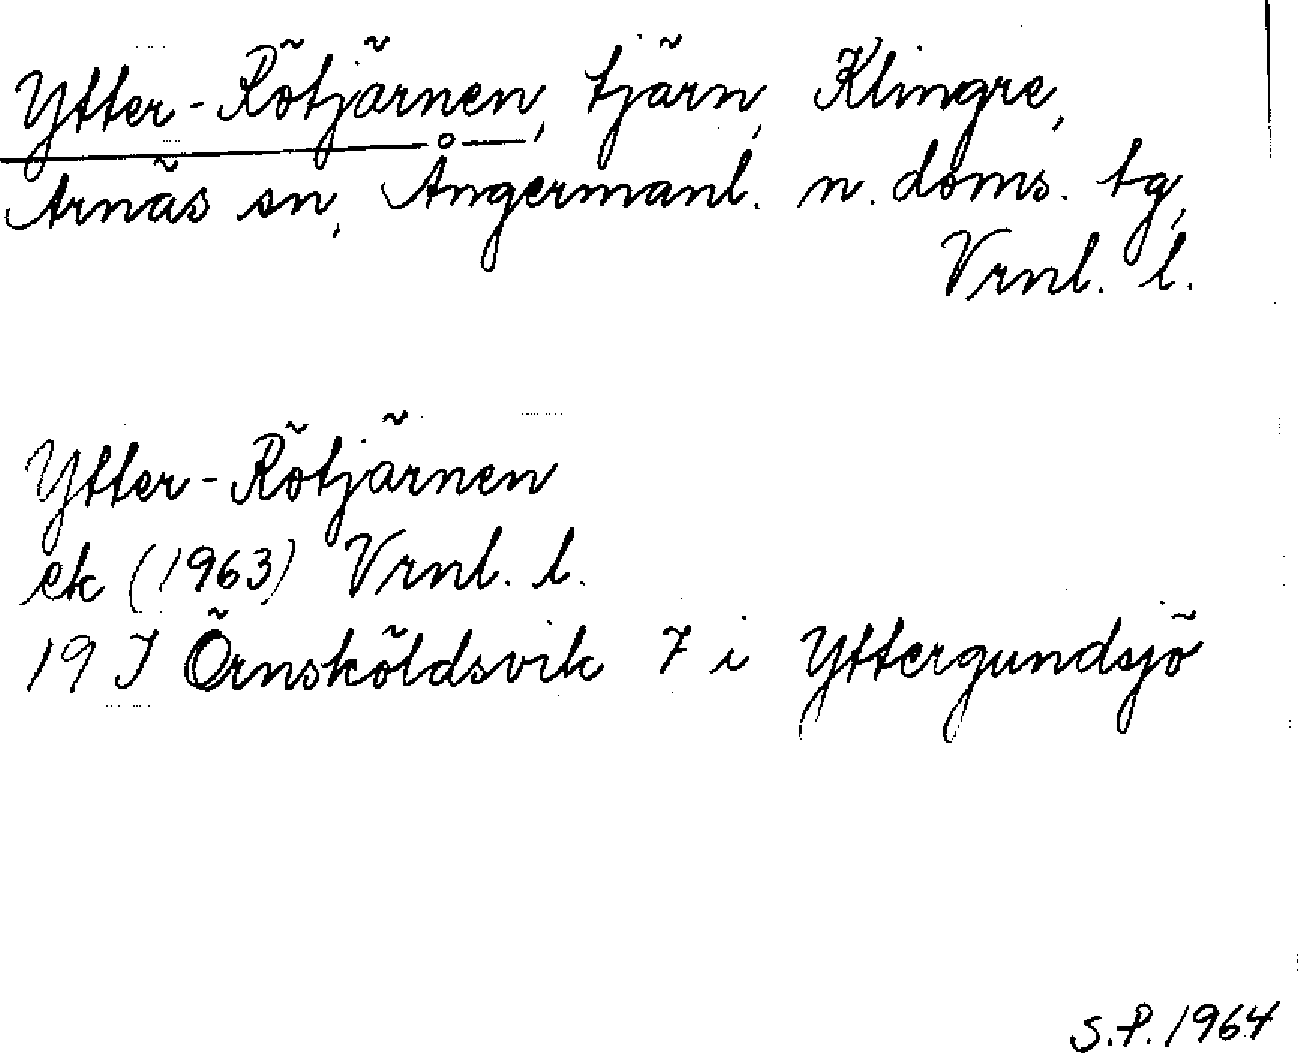 Ytter-Rötjärnen, tjärn, Klingre,
Arnäs sn, Ångermanl. n. doms. tg,
Vrnl. l.
Ytter-Rötjärnen
ek (1963) Vrnl. l.
19 J Örnsköldsvik 7 i Yttergundsjö
S.P. 1964